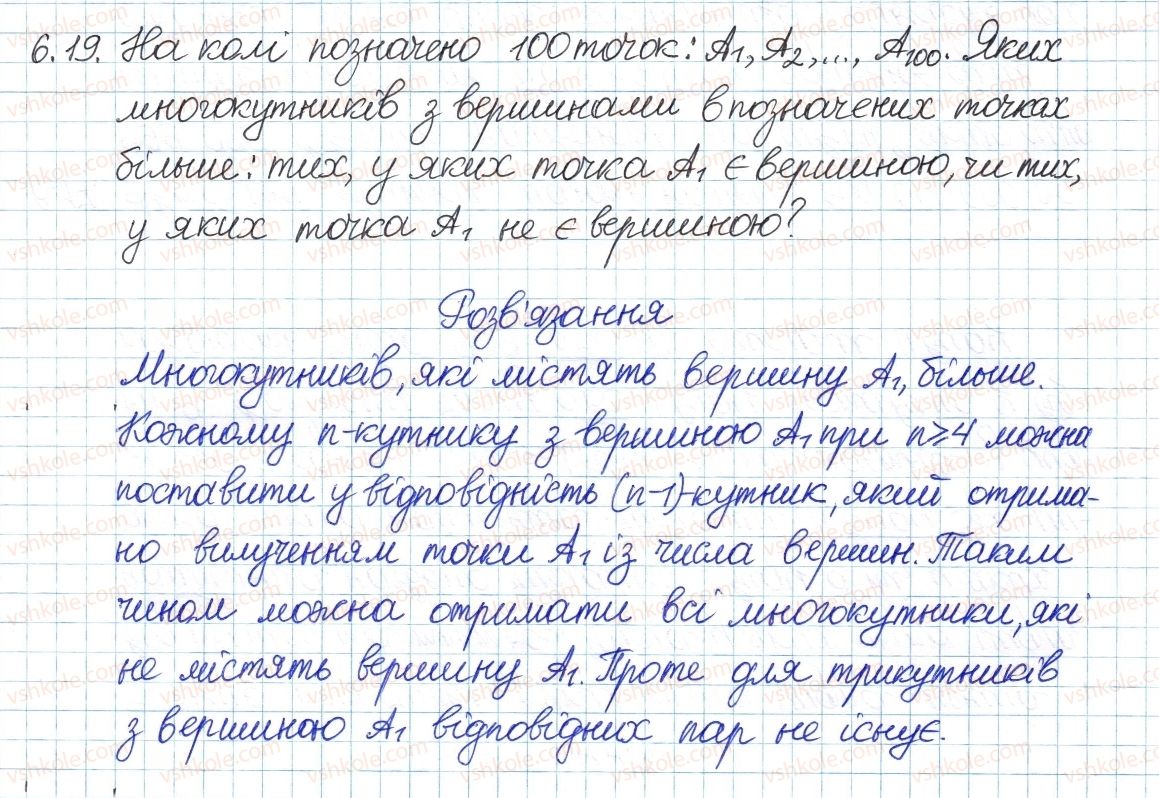 6.19. На колі позначено 100 точок: A₁, A₂, ..., A₁₀₀. Яких
многокутників з вершинами в позначених точках
більше: тих, у яких точка A₁ є вершиною, чи тих,
у яких точка A₁ не є вершиною?
Розв'язання
Многокутників, які містять вершину A₁, більше.
Кожному n-кутнику з вершиною A₁ при n⩾4 можна
поставити у відповідність (n-1)-кутник, який отрима-
но вилученням точки A₁ із числа вершин. Таким
чином можна отримати всі многокутники, які
не містять вершину A₁. Проте для трикутників
з вершиною A₁ відповідних пар не існує.